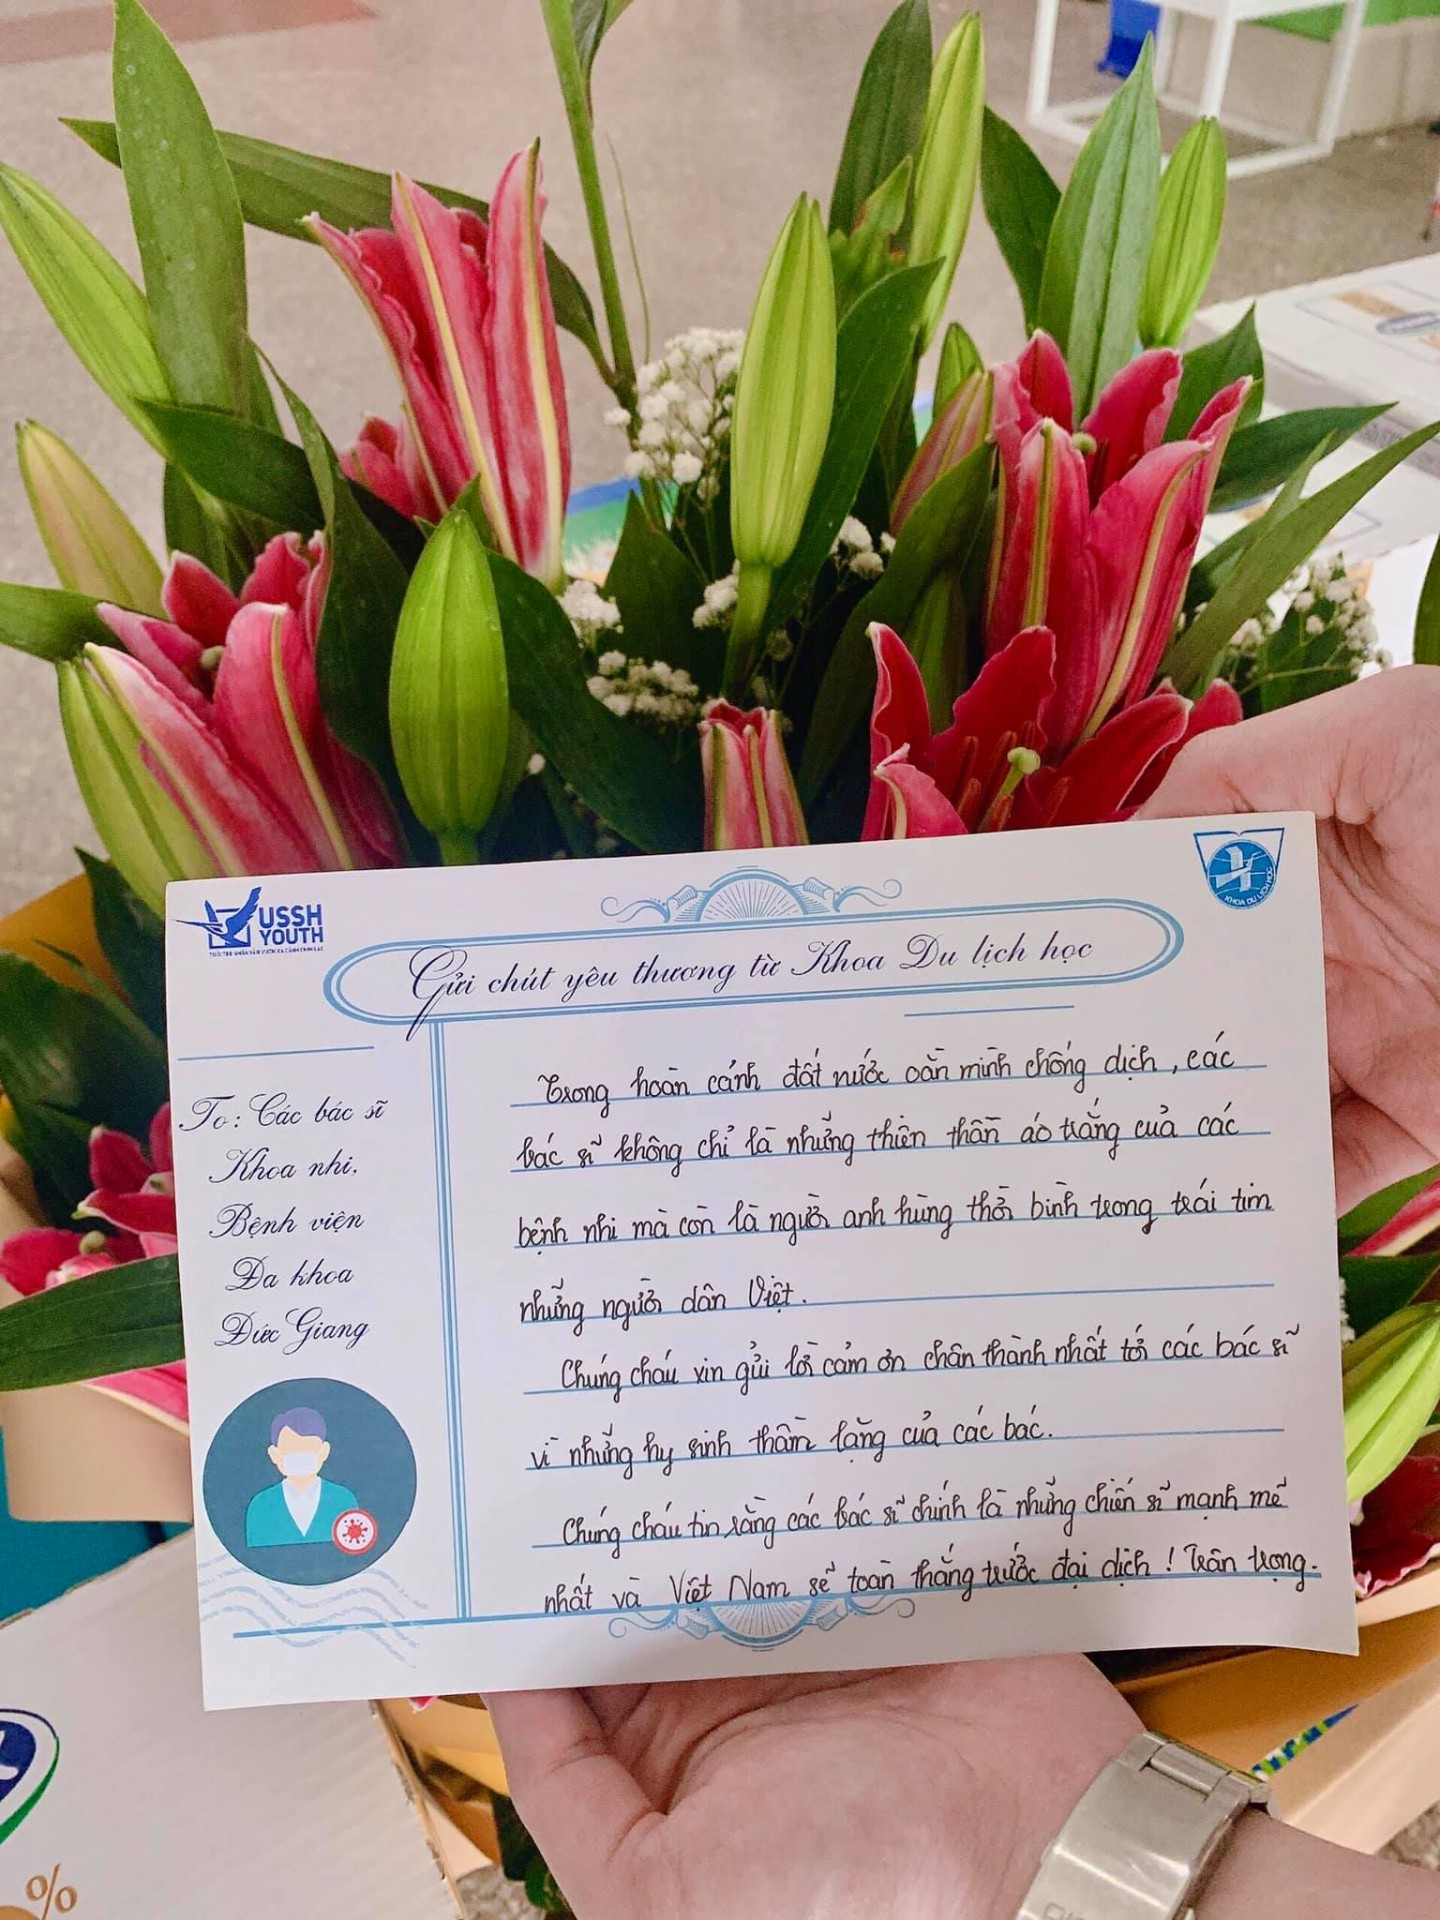 USSH
YOUTH
KHOA DU LỊCH HỌC
Gửi chút yêu thương từ Khoa Du lịch học
To: Các bác sĩ
Khoa nhi,
Bệnh viện
Đa khoa
Đức Giang
Trong hoàn cảnh đất nước oằn mình chống dịch, các
bác sĩ không chỉ là những thiên thần áo trắng của các
bệnh nhi mà còn là người anh hùng thời bình trong trái tim
những người dân Việt.
Chúng cháu xin gửi lời cảm ơn chân thành nhất tới các bác sĩ
vì những hy sinh thầm lặng của các bác.
Chúng cháu tin rằng các bác sĩ chính là những chiến sĩ mạnh mẽ
nhất và Việt Nam sẽ toàn thắng trước đại dịch! Trân trọng.
%